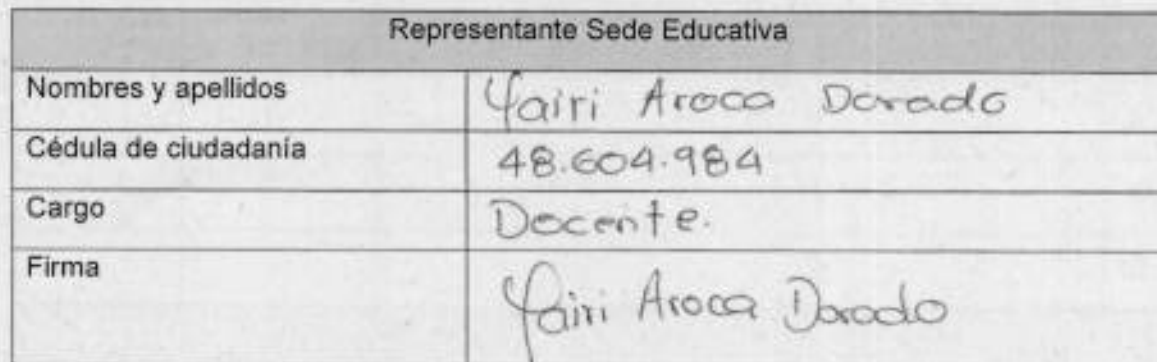 Representante Sede Educativa
Nombres y apellidos Yairi Aroca Dorado
Cédula de ciudadanía 48.604.984
Cargo Docente.
Firma Yairi Aroca Dorado